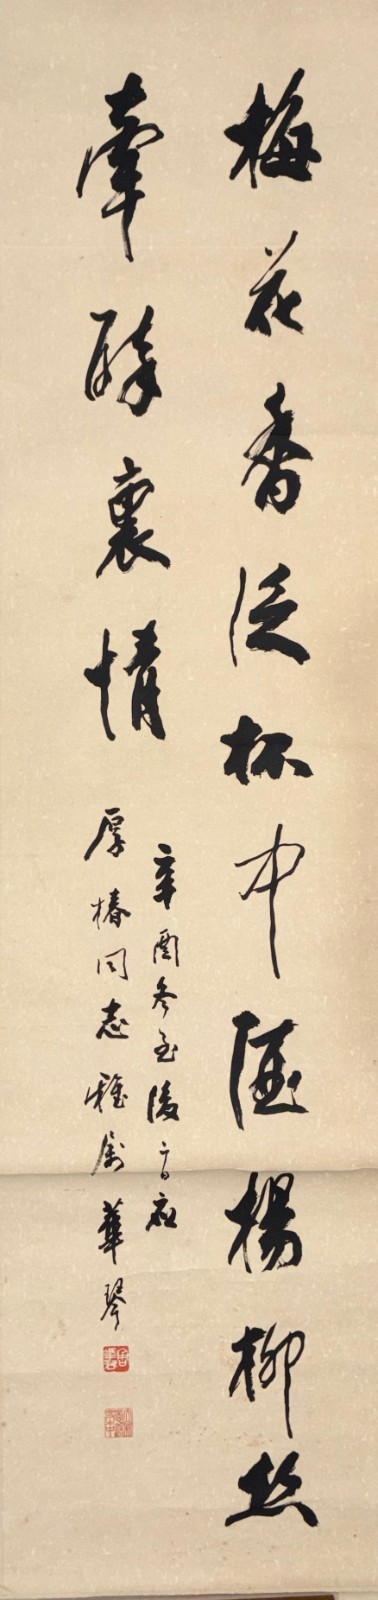 梅花香泛杯中酒楊柳丝
牽醉裏情
辛酉冬至後二日應
厚椿同志雅属 華琴